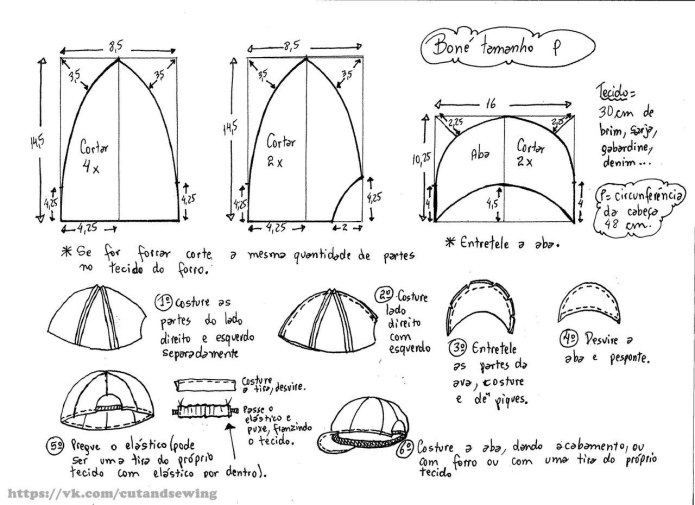 Boné tamanho P
8,5
3,5
3,5
14,5
Cortar
4x
4,25
4,25
4,25
8,5
3,5
3,5
14,5
Cortar
2x
4,25
4,25
4,25
2
16
2,25
2,5
10,25
Aba
Cortar
2x
4
4,5
4
Tecido=
30cm de
brim, sarja,
gabardine,
denim...
P= circunferência
da cabeça
48 cm.
* Entretele a aba.
* Se for forrar corte a mesma quantidade de partes
no tecido do forro.
1º Costure as
partes do lado
direito e esquerdo
separadamente
2º Costure
lado
direito
com
esquerdo
3º Entretele
as partes da
ava, costure
e dê piques.
4º Desvire a
aba e pesponte.
Costure
a tira, desvire.
Passe o
elástico e
puxe, franzindo
o tecido.
5º Pregue o elástico (pode
ser uma tira do próprio
tecido com elástico por dentro).
6º Costure a aba, dando acabamento, ou
com forro ou com uma tira do próprio
tecido
https://vk.com/cutandsewing